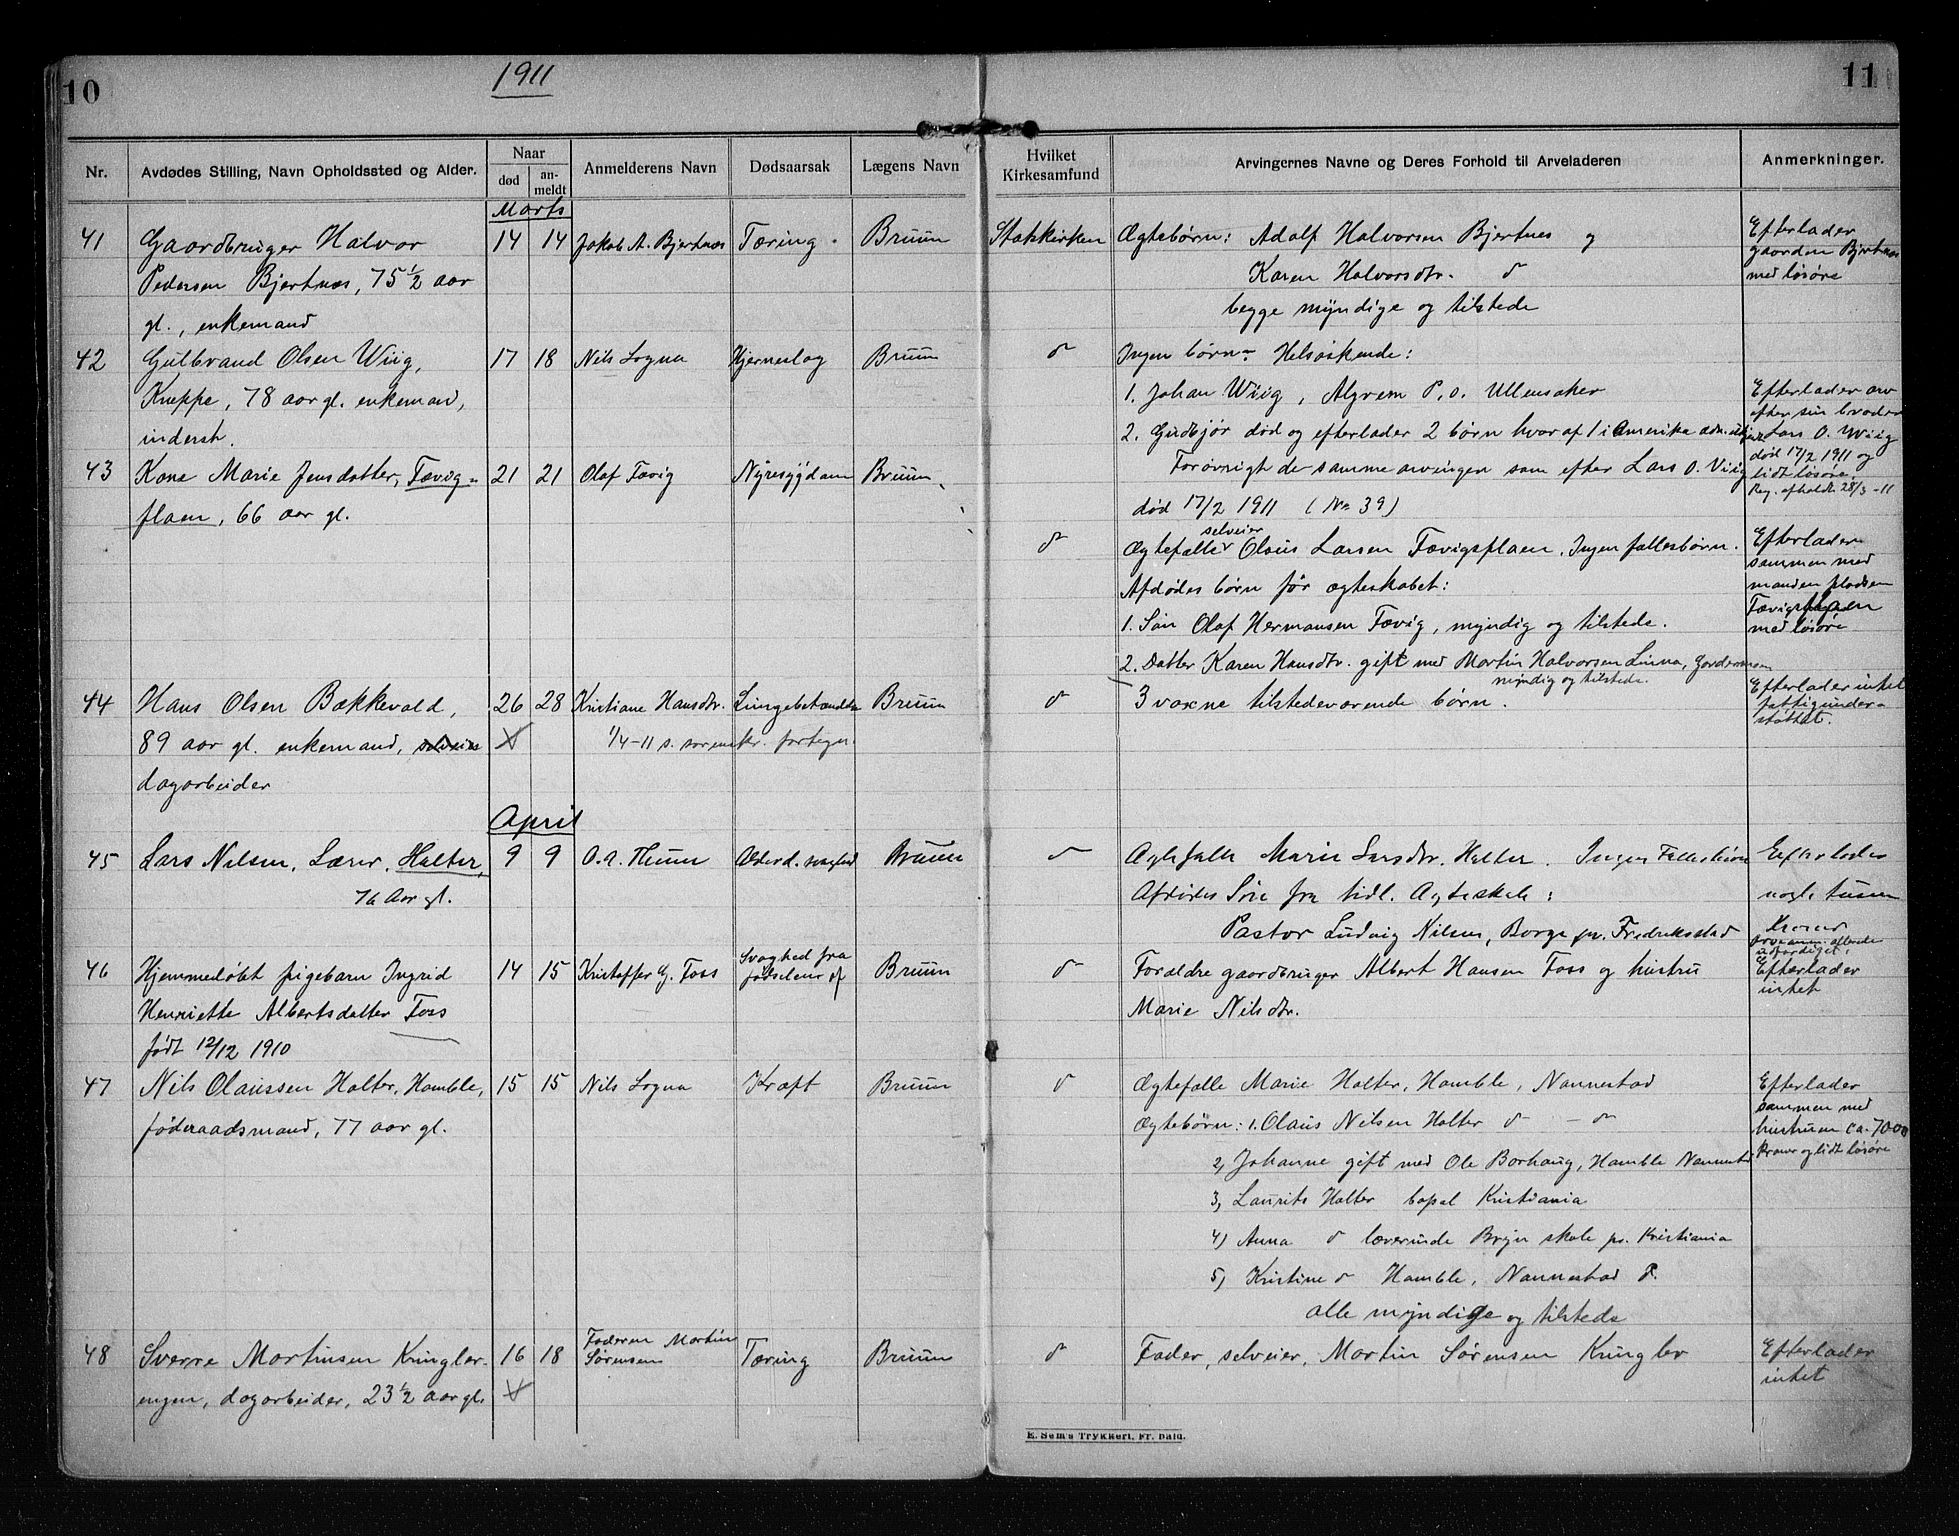 10
1911
11
Nr.
Avdødes Stilling, Navn Opholdssted og Alder.
Naar
død
an-
meldt
Anmelderens Navn
Dødsaarsak
Lægens Navn
Hvilket
Kirkesamfund
Arvingernes Navne og Deres Forhold til Arveladeren
Anmerkninger.
Marts
41 Gaardbruger Halvor 14 14 Jakob A. Bjertnæs Tæring. Bruun Statskirken Ægtebørn: Adolf Halvorsen Bjertnes og Efterlader
Pedersen Bjertnæs, 75 1/2 aar Karen Halvorsdtr. do gaarden Bjertnæs
gl., enkemand begge myndige og tilstede med løsøre
42 Gulbrand Olsen Wiig, 17 18 Nils Logna Hjerneslag Bruun do Ingen børn. Helsøskende:
Kneppe, 78 aar gl. enkemand, 1. Johan Wiig, Algrem P. o. Ullensaker Efterlader arv
inderst. 2. Gudbjør død og efterlader 2 børn hvoraf 1 i Amerika efter sin broder
Lars O. Wiig
Forøvrigt de samme arvinger som efter Lars O. Viig død 17/2 1911 og
død 17/2 1911 (No 39) lidt løsøre.
Reg. afholdt 28/3-11
43 Kone Marie Jensdatter, Tævig- 21 21 Olaf Tævig Nyresygdam Bruun
flaen, 66 aar gl.
do Ægtefælle selveier Olaus Larsen Tævigsflaen. Ingen fællesbørn. Efterlader
Afdødes børn før ægteskabet: sammen med
manden pladsen
1. Søn Olaf Hermansen Tævig, myndig og tilstede. Tævigsflaen
med løsøre
2. Datter Karen Hansdtr. gift med Martin Halvorsen Linna, Gardermoen
myndig og tilstede.
44 Hans Olsen Bækkevold, 26 28 Kristiane Hansdtr. Lungebetændelse Bruun do 3 voxne tilstedeværende børn. Efterlader intet
fattigunder-
støttet.
89 aar gl. enkemand, selveier 1/4-11 s. sorenskr. fortegn.
dagarbeider
April
45 Lars Nilsen, Lærer, Halter, 9 9 O. A. Theun Alderd. svaghed Bruun do Ægtefælle Marie Larsdtr. Halter. Ingen Fællesbørn Efterlader
76 Aar gl. Afdødes Søn fra tidl. Ægteskab: nogle tusen
Pastor Ludvig Nilsen, Borge pr. Fredriksstad Kroner
46 Hjemmedøbt pigebarn Ingrid 14 15 Kristoffer G. Foss Svaghed fra fødselen af Bruun do Forældre gaardbruger Albert Hansen Foss og hustru Efterlader
intet
Henriette Albertsdatter Foss Marie Nilsdtr.
født 12/12 1910
47 Nils Olaussen Halter, Hamble, 15 15 Nils Logna Kræft Bruun do Ægtefælle Marie Halter, Hamble, Nannestad Efterlader
føderaadsmand, 77 aar gl. Ægtebørn: 1. Olaus Nilsen Halter do - do sammen med
hustruen ca. 7000
2, Johanne gift med Ole Borhaug, Hamble Nannestad kroner og lidt løsøre
3, Laurits Halter bopæl Kristiania
4) Anna do lærerinde Bryn skole pr. Kristiania
5, Kristine do Hamble, Nannestad P.
alle myndige og tilstede
48 Sverre Martinsen Kringler- 16 18 Faderen Martin Sørensen Tæring Bruun do Fader, selveier, Martin Sørensen Kringler Efterlader
engen, dagarbeider, 23 1/2 aar gl. intet
E. Sem's Trykkeri, Fr.hald.